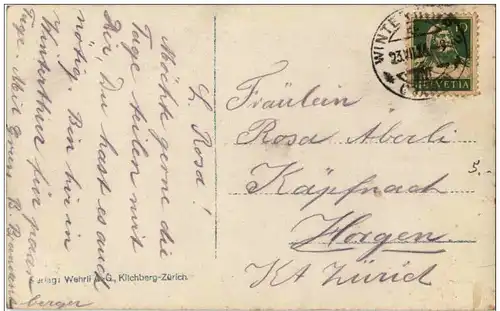 L. Rosa!
Möchte gerne die
Tage teilen mit
Dir, Du hast es auch
nötig. Bin hier in
Winterthur für paar
Tage. Mit Gruss B.
berger
Fräulein
Rosa Aberli
Käpfnach
Horgen
Kt Zürich
WINTE
23.VII.
HELVETIA
5.-
Verlag: Wehrli A.-G., Kilchberg-Zürich.